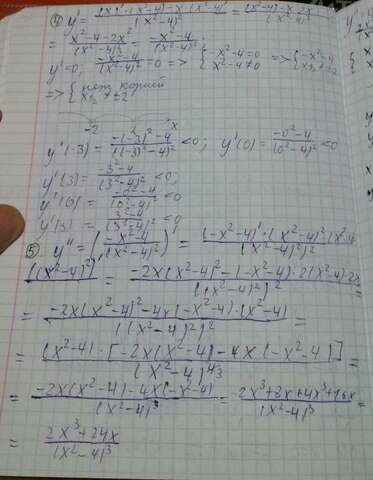 ④ y' = (x)'·(x²-4)-x·(x²-4)' / (x²-4)² = (x²-4)-x·2x / (x²-4)²
= x²-4-2x² / (x²-4)² = -x²-4 / (x²-4)²
y'=0, -x²-4 / (x²-4)² = 0 => { -x²-4=0 x²-4≠0 => { -x²=4 x≠±2
=> { нет корней x≠±2
-2 2 x
y'(-3) = -(-3)²-4 / ((-3)²-4)² <0; y'(0) = -0²-4 / (0²-4)² <0
y'(3) = -3²-4 / (3²-4)² <0;
y'(0) = -0²-4 / (0²-4)² <0
y'(3) = -3²-4 / (3²-4)² <0
⑤ y'' = (-x²-4 / (x²-4)²)' = (-x²-4)'·(x²-4)²-(x²-4)
((x²-4)²)' / ((x²-4)²)² = -2x(x²-4)²-(-x²-4)·2(x²-4)·2x / ((x²-4)²)² =
= -2x(x²-4)²-4x(-x²-4)·(x²-4) / ((x²-4)²)² =
= (x²-4)·[-2x(x²-4)-4x(-x²-4)] / (x²-4)⁴³ =
= -2x(x²-4)-4x(-x²-4) / (x²-4)³ = 2x³+8x+4x³+16x / (x²-4)³
= 2x³+24x / (x²-4)³